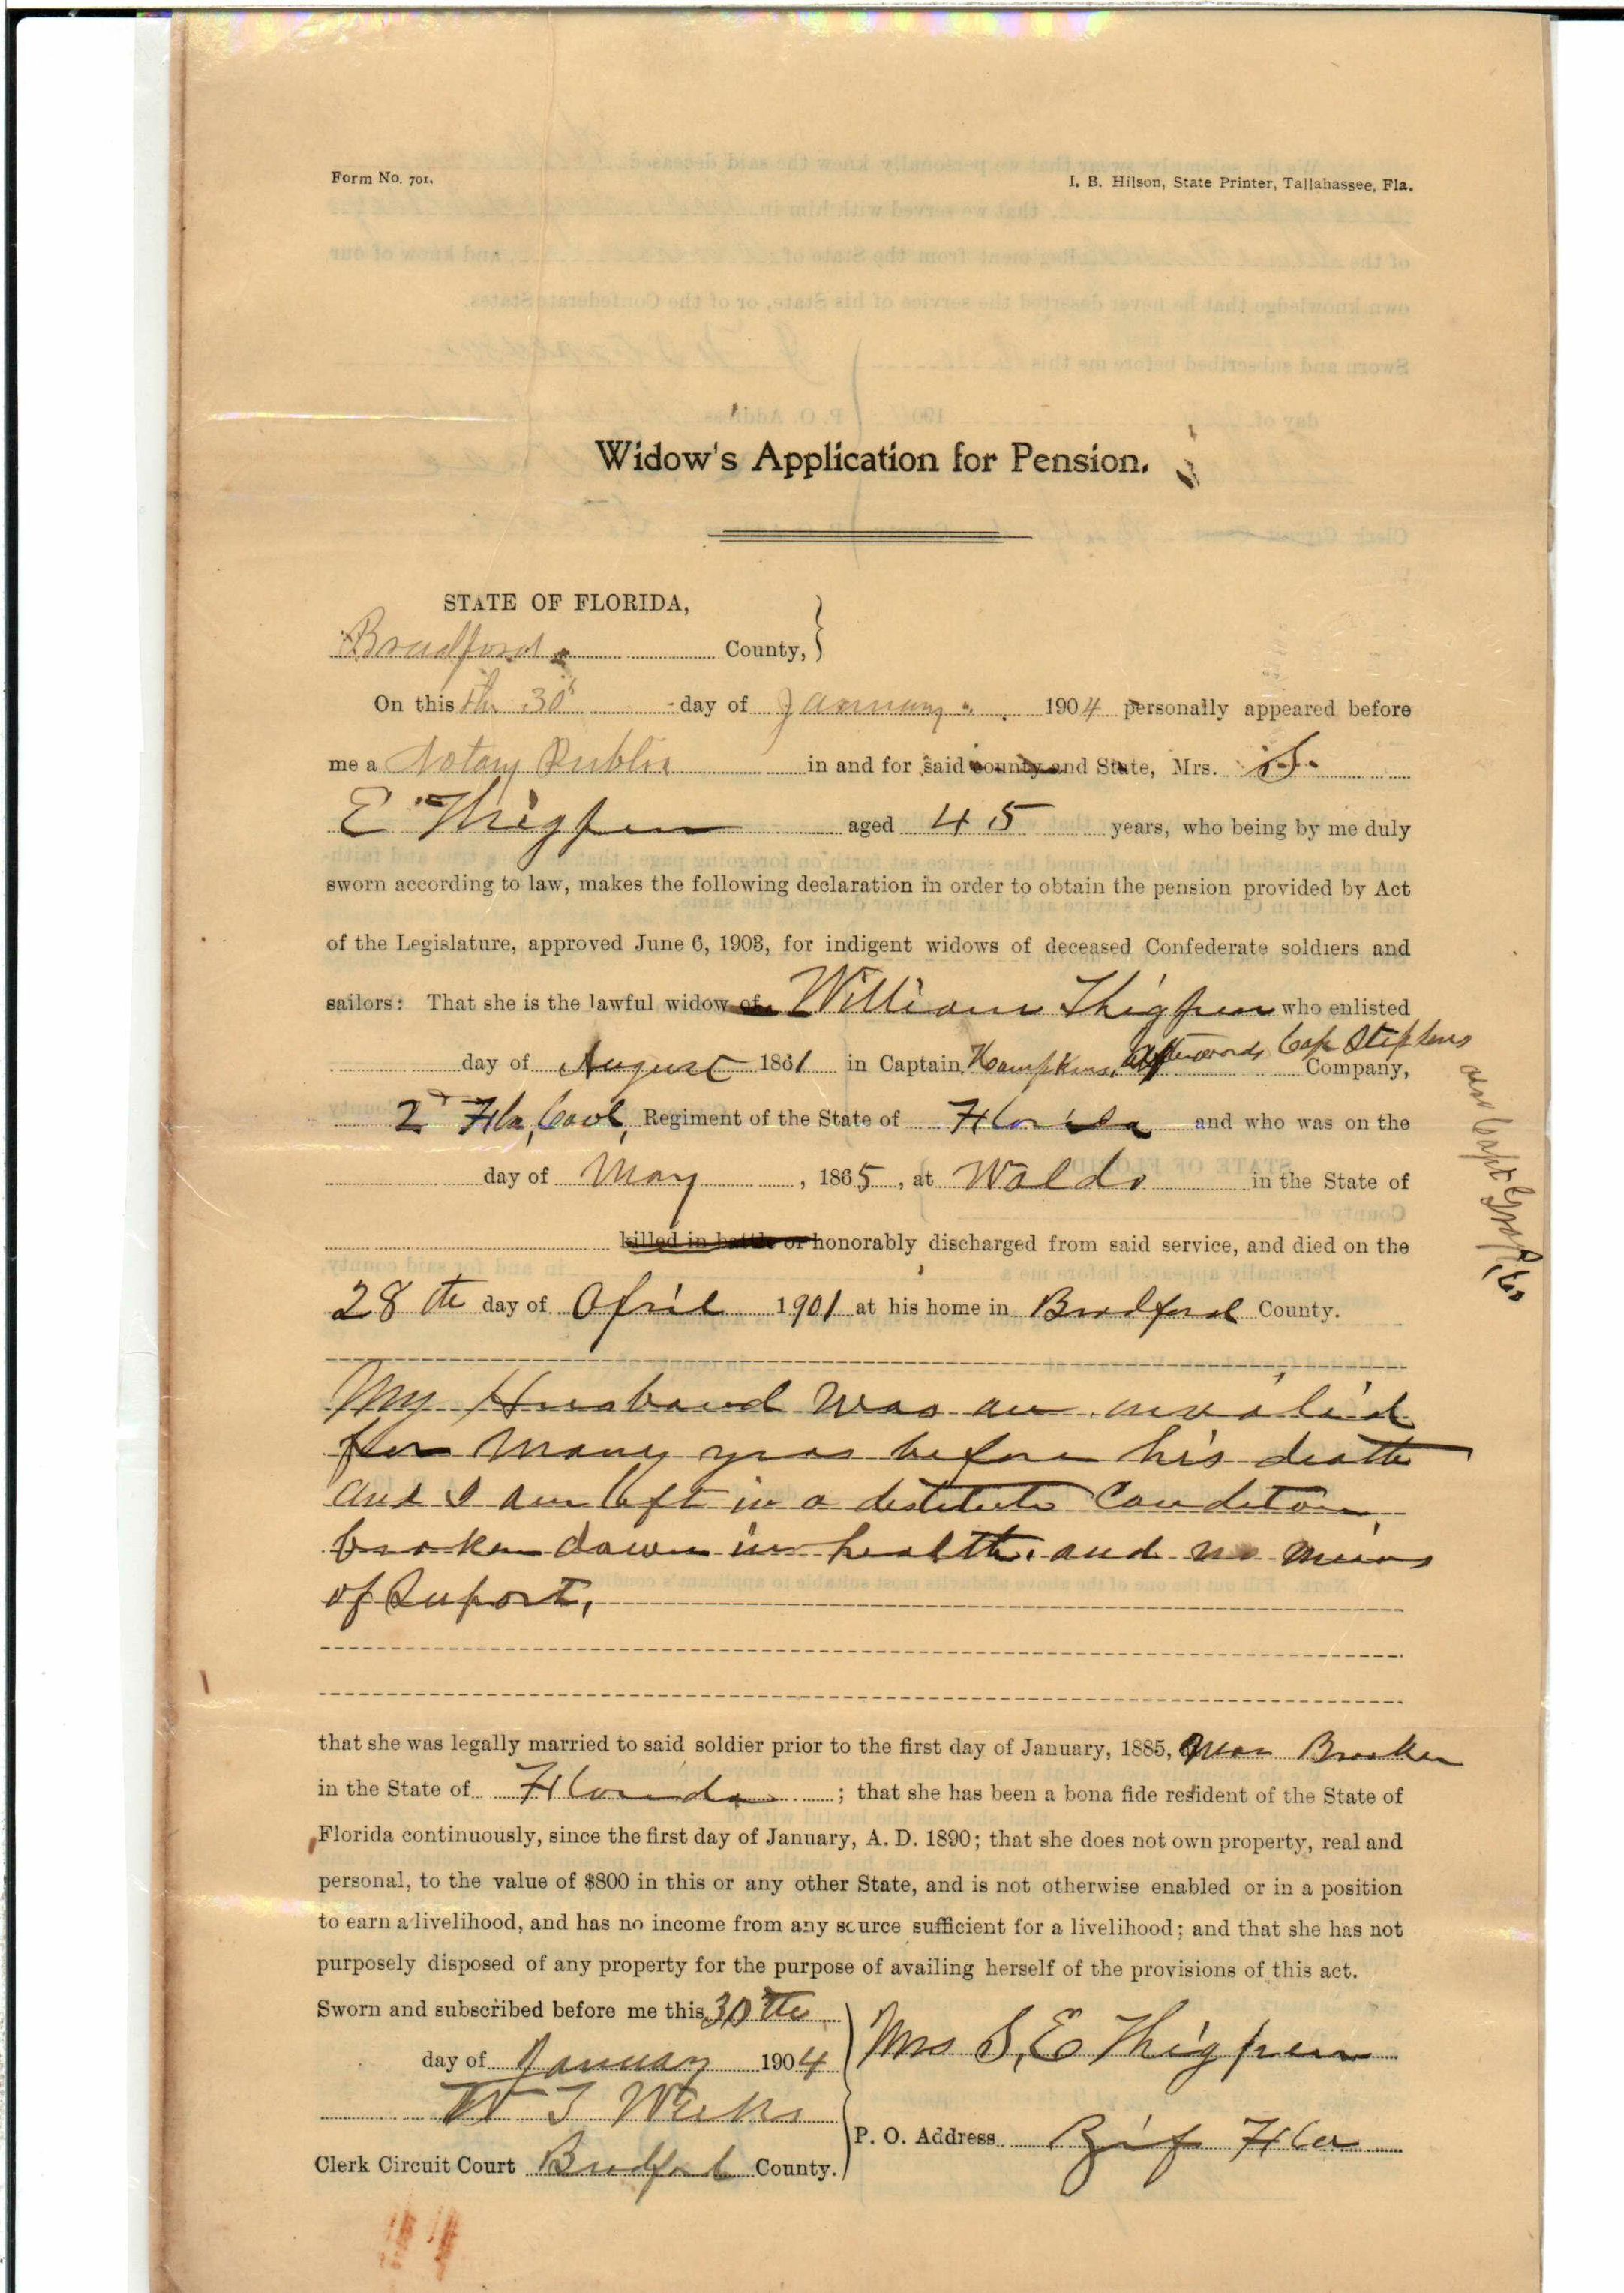 Form No. 701.
I. B. Hilson, State Printer, Tallahassee, Fla.
Widow's Application for Pension.
STATE OF FLORIDA,
Bradford County,
On this the 30" day of January 1904 personally appeared before
me a Notary Public in and for said county and State, Mrs. S.
E Thigpen aged 45 years, who being by me duly
sworn according to law, makes the following declaration in order to obtain the pension provided by Act
of the Legislature, approved June 6, 1903, for indigent widows of deceased Confederate soldiers and
sailors: That she is the lawful widow of William Thigpen who enlisted
day of August 1861 in Captain afterwards Cap Stephens Company,
and Capt
2d Fla, Cavl, Regiment of the State of Florida and who was on the
day of May, 1865, at Waldo in the State of
killed in battle or honorably discharged from said service, and died on the
28th day of April 1901 at his home in Bradford County.
My Husband was an invalid
for many yeas before his death
and I am left in a destitute Condition
broken down in health, and no means
of Suport,
that she was legally married to said soldier prior to the first day of January, 1885, Near Brooker
in the State of Florida; that she has been a bona fide resident of the State of
Florida continuously, since the first day of January, A. D. 1890; that she does not own property, real and
personal, to the value of $800 in this or any other State, and is not otherwise enabled or in a position
to earn a livelihood, and has no income from any source sufficient for a livelihood; and that she has not
purposely disposed of any property for the purpose of availing herself of the provisions of this act.
Sworn and subscribed before me this 30th
day of January 1904
Mrs S, E Thigpen
W T Weeks
P. O. Address Zif Fla
Clerk Circuit Court Bradford County.